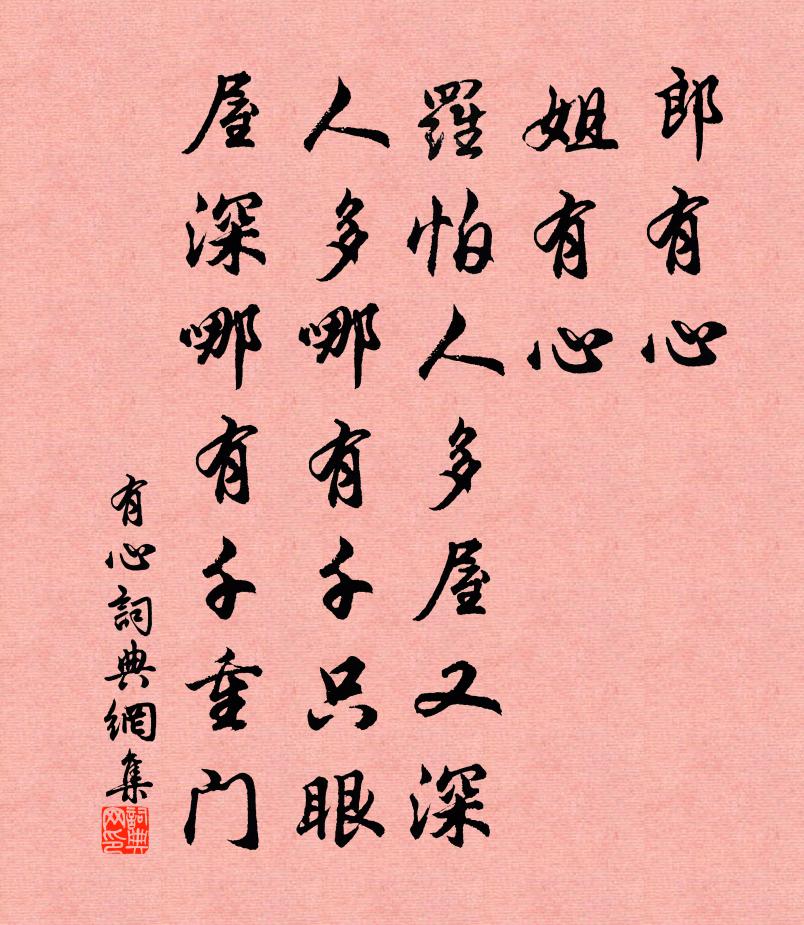 郎有心
姐有心
羅怕人多屋又深
人多哪有千只眼
屋深哪有千重门
有心詞典網集
詞典网印